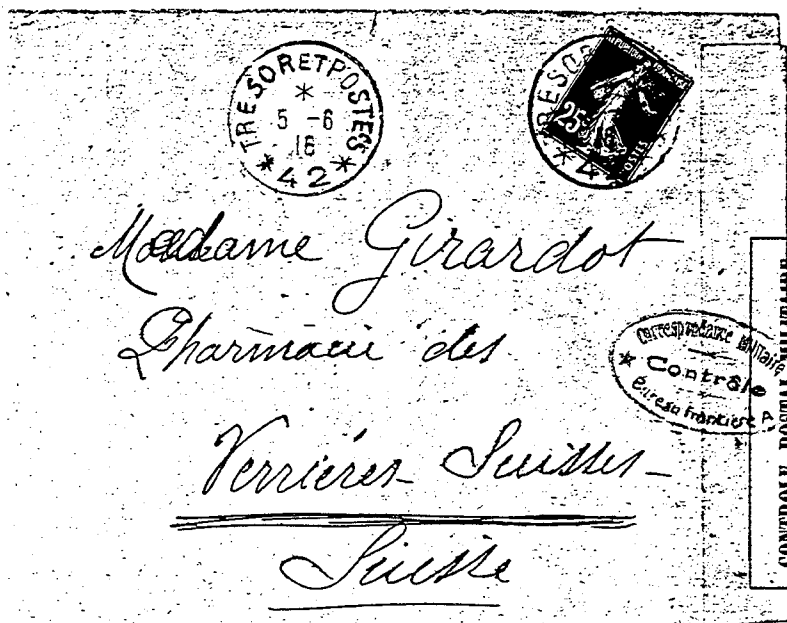 TRESOR ET POSTES
*
5 -6
16
* 42 *
RESO
25
POSTES
* 4
Madame Girardot
Pharmacie des
Verrières Suisses
Suisse
Correspondance Militaire
* Contrôle
Bureau frontière A
CONTROLE POSTAL MILITAIRE